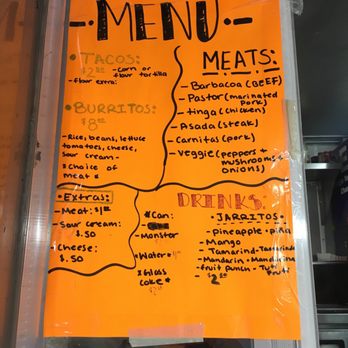 MENU
• TACOS:
$2.50 - corn or
flour tortilla
- flour extra:
• BURRITOS:
$8.00
- Rice, beans, lettuce
tomatoes, cheese,
sour cream -
* choice of
meat *
MEATS:
- Barbacoa (BEEF)
- Pastor (marinated
pork)
- tinga (chicken)
- Asada (steak)
- Carnitas (pork)
- Veggie (peppers +
mushrooms +
onions)
• Extras:
- Meat: $1.00
- Sour cream:
$.50
- Cheese:
$.50
DRINKS
* Can:
- Monster
- Water
* Glass
Coke *
• JARRITOS:
- pineapple • piña
- Mango
- Tamarind • Tamarindo
- Mandarin • Mandarina
- fruit punch • Tutti
Frutti
- $2.50